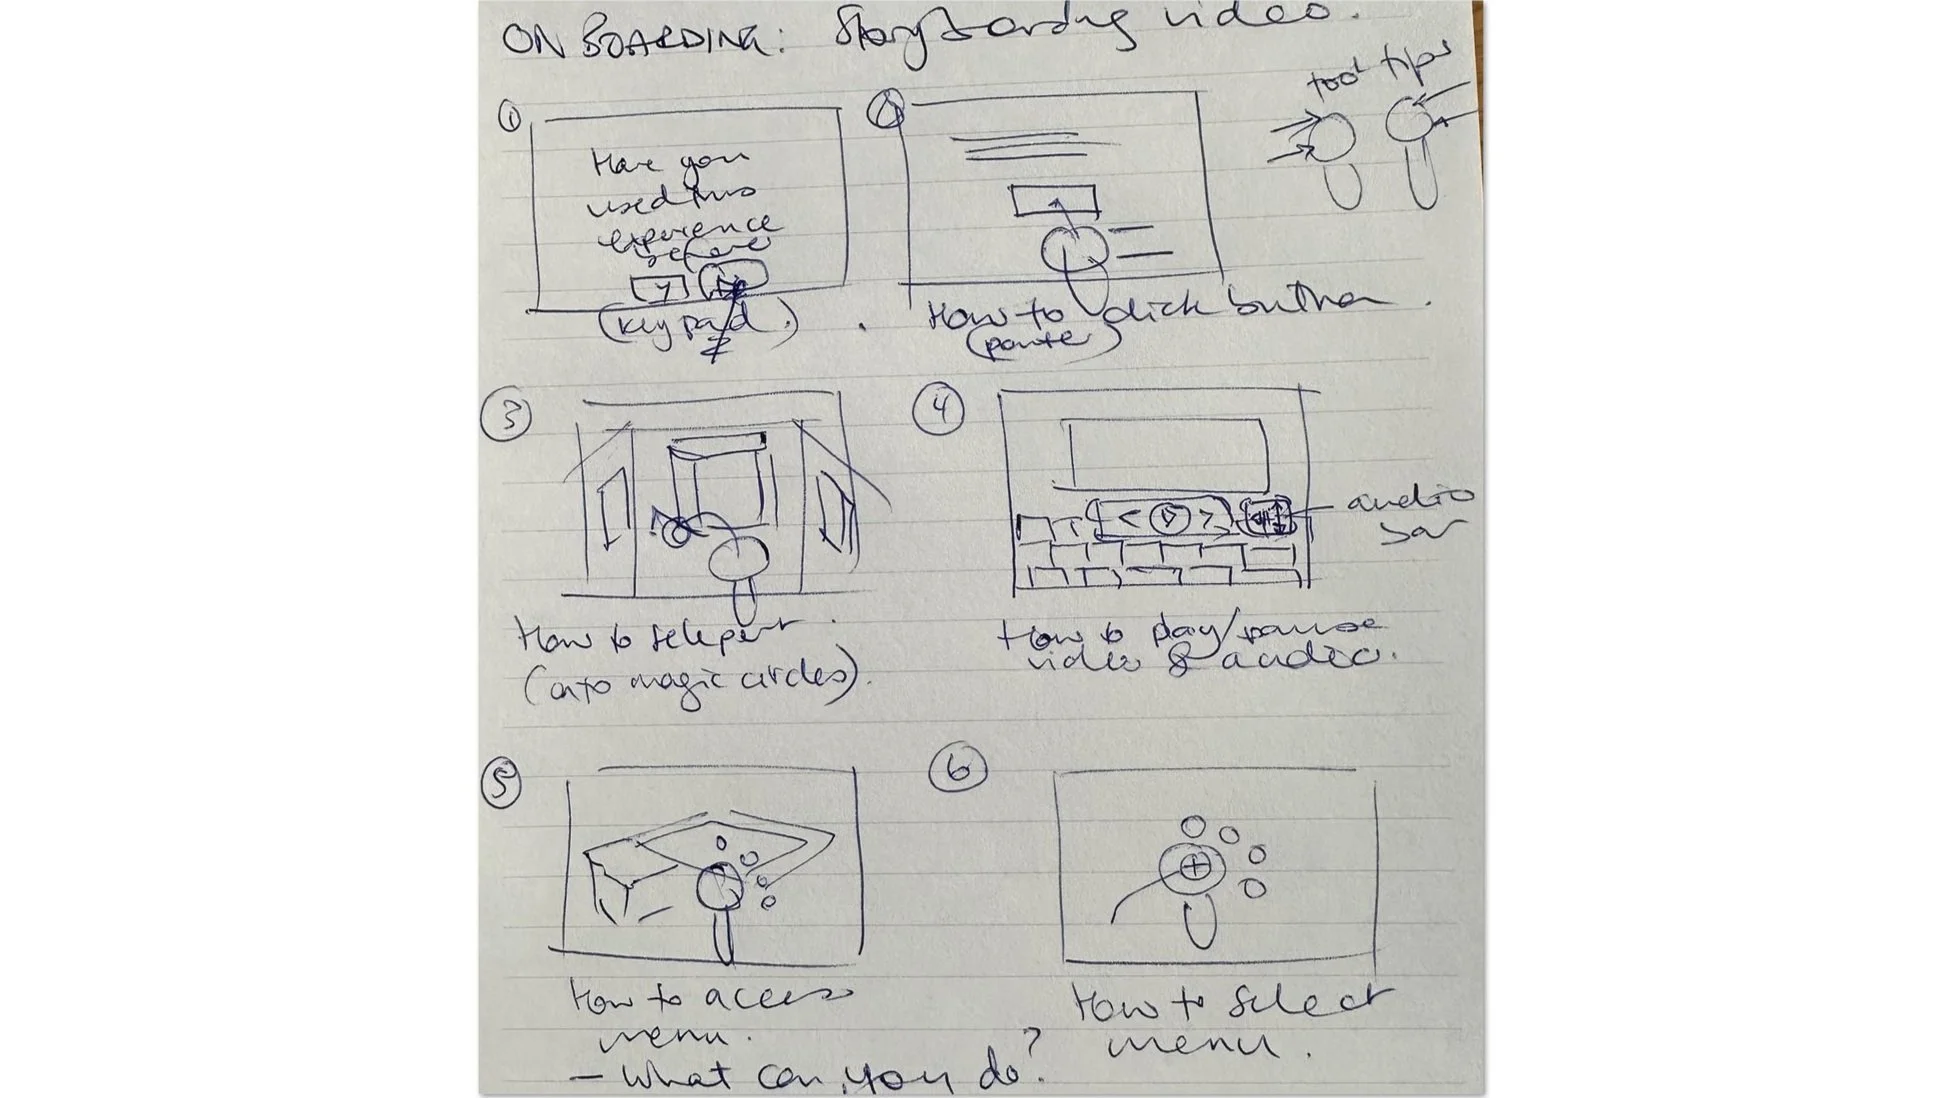 ONBOARDING: Storyboarding video.
tool tips
1
Have you
used this
experience
before
Y
(keypad).
How to click button.
(pointer)
3
How to teleport.
(onto magic circles).
4
audio
bar
How to play/pause
video & audio.
5
How to access
menu.
- What can you do?
6
How to select
menu.